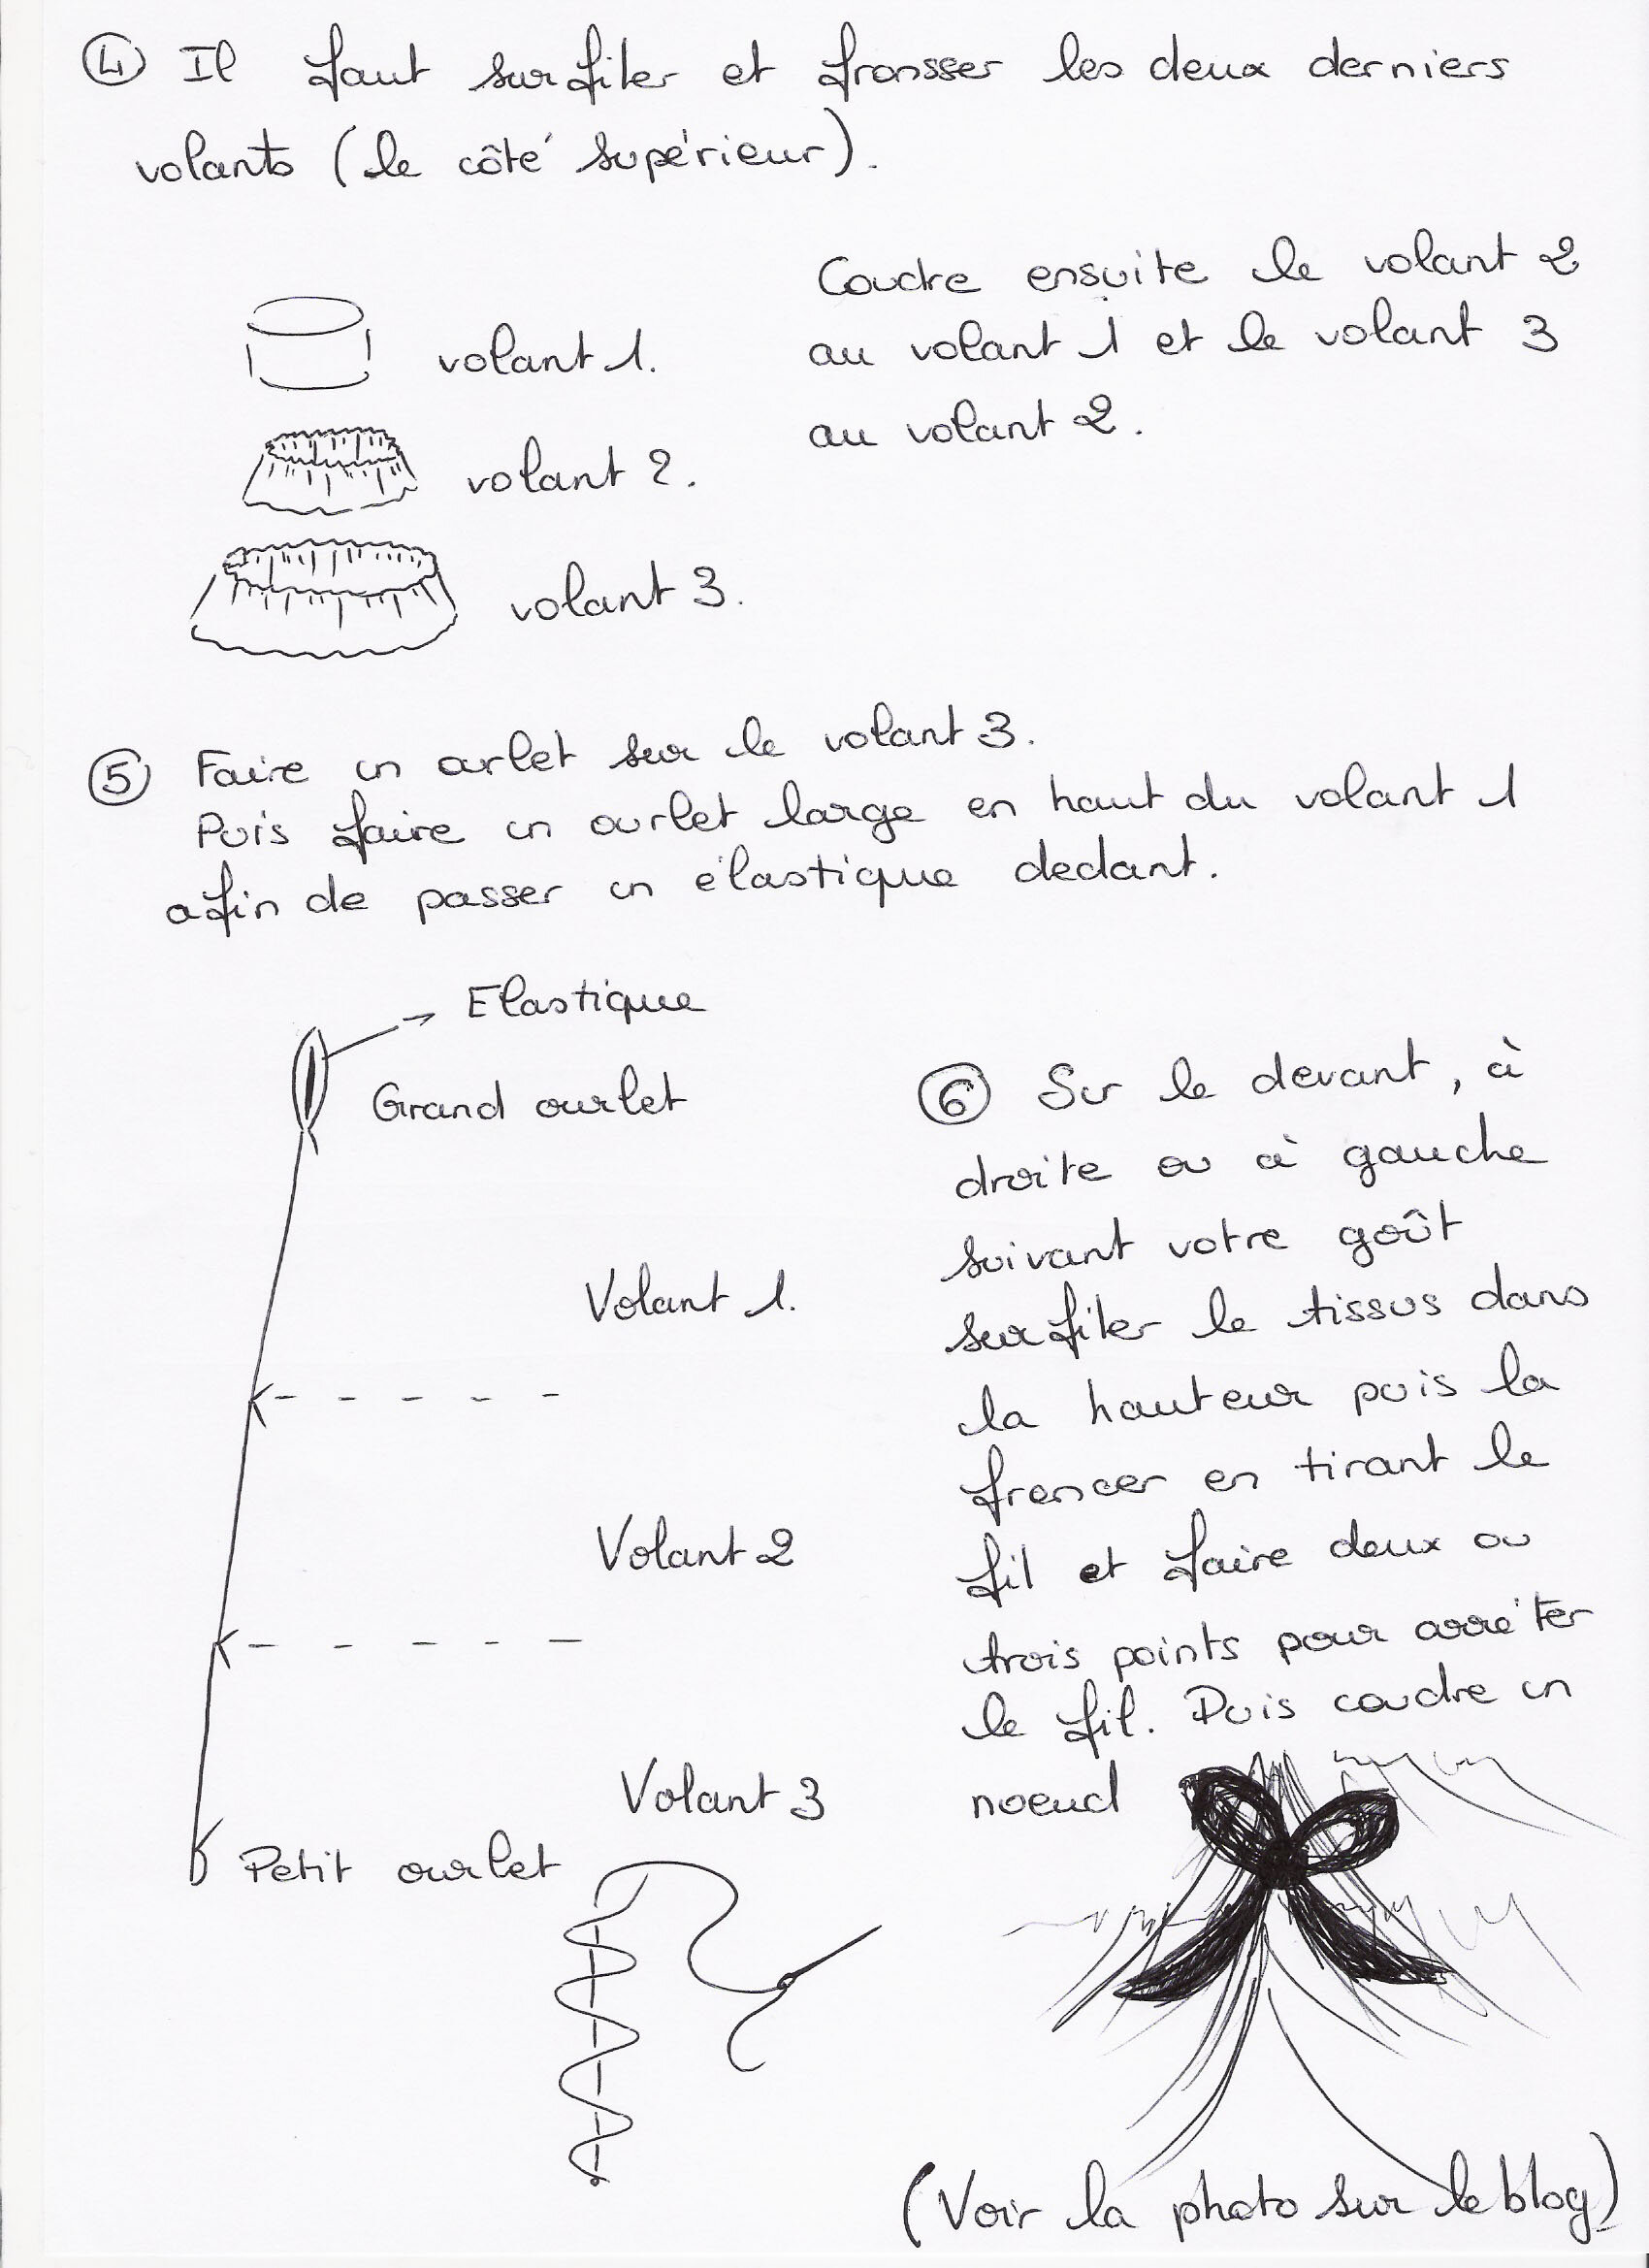 ④ Il faut surfiler et fronsser les deux derniers
volants (le côté supérieur).
volant 1.
volant 2.
volant 3.
Coudre ensuite le volant 2
au volant 1 et le volant 3
au volant 2.
⑤ Faire un ourlet sur le volant 3.
Puis faire un ourlet large en haut du volant 1
afin de passer un élastique dedant.
Elastique
Grand ourlet
Volant 1.
Volant 2
Volant 3
Petit ourlet
⑥ Sur le devant, à
droite ou à gauche
suivant votre goût
surfiler le tissus dans
la hauteur puis la
froncer en tirant le
fil et faire deux ou
trois points pour arréter
le fil. Puis coudre un
noeud
(Voir la photo sur le blog)